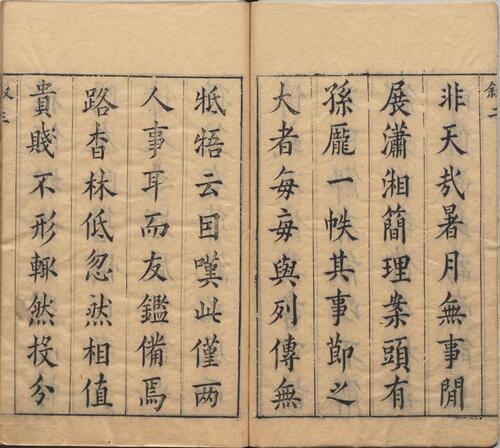 叙二
非天哉暑月無事閒
展瀟湘簡理案頭有
孫龐一帙其事節之
大者每每與列傳無
牴牾云因嘆此僅两
人事耳而友鑑備焉
路杳林低忽然相值
貴賤不形輙然投分
叙三